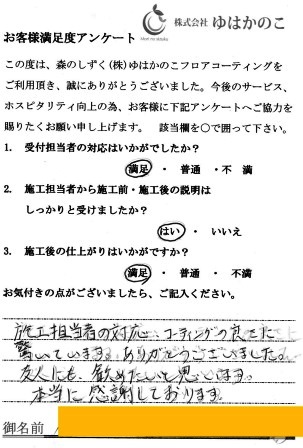 株式会社 ゆはかのこ
Mori no sizuku
お客様満足度アンケート
この度は、森のしずく(株)ゆはかのこフロアコーティングを
ご利用頂き、誠にありがとうございました。今後のサービス、
ホスピタリティ向上の為、お客様に下記アンケートへご協力を
賜りたくお願い申し上げます。 該当欄を○で囲って下さい。
1. 受付担当者の対応はいかがでしたか?
満足 ・ 普通 ・不 満
2. 施工担当者から施工前・施工後の説明は
しっかりと受けましたか?
はい ・ いいえ
3. 施工後の仕上がりはいかがですか?
満足 ・ 普通 ・ 不満
お気付きの点がございましたら、ご記入ください。
施工担当者の対応、コーティングの良さに
驚いています。ありがとうございました。
友人にも、勧めたいと思います。
本当に感謝しております。
御名前